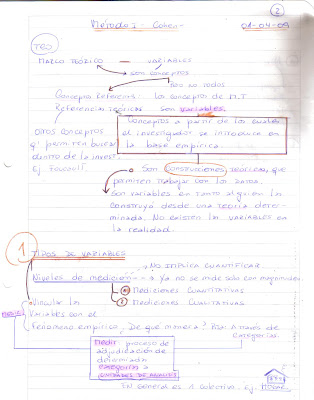 ②
Método I - Cohen -
01-04-09
TEO
MARCO TEÓRICO — VARIABLES
son conceptos
Pero no todos
Conceptos Referencias: los conceptos de M.T
Referencias teóricas son variables.
Conceptos a partir de los cuales
el investigador se introduce en
la base empírica.
otros conceptos
q' permiten bucear
dentro de la invest.
Ej. Foucault.
Son CONSTRUCCIONES TEÓRICAS, que
permiten trabajar con los datos.
Son variables en tanto alguien las
construyó desde una teoría deter-
minada. No existen las variables en
la realidad.
1 TIPOS DE VARIABLES
NO IMPLICA CUANTIFICAR
Niveles de medición --→ Ya no se mide solo con magnitudes
MEDICIONES CUANTITATIVAS
MEDICIONES CUALITATIVAS
MEDIR
Vincular las
Variables con el
fenómeno empírico. De que manera? Rta: A través de
categorías.
Medir proceso de
adjudicación de
determinada
categoría a
UNIDADES DE ANÁLISIS
EN General es 1 colectivo. Ej. HOGAR